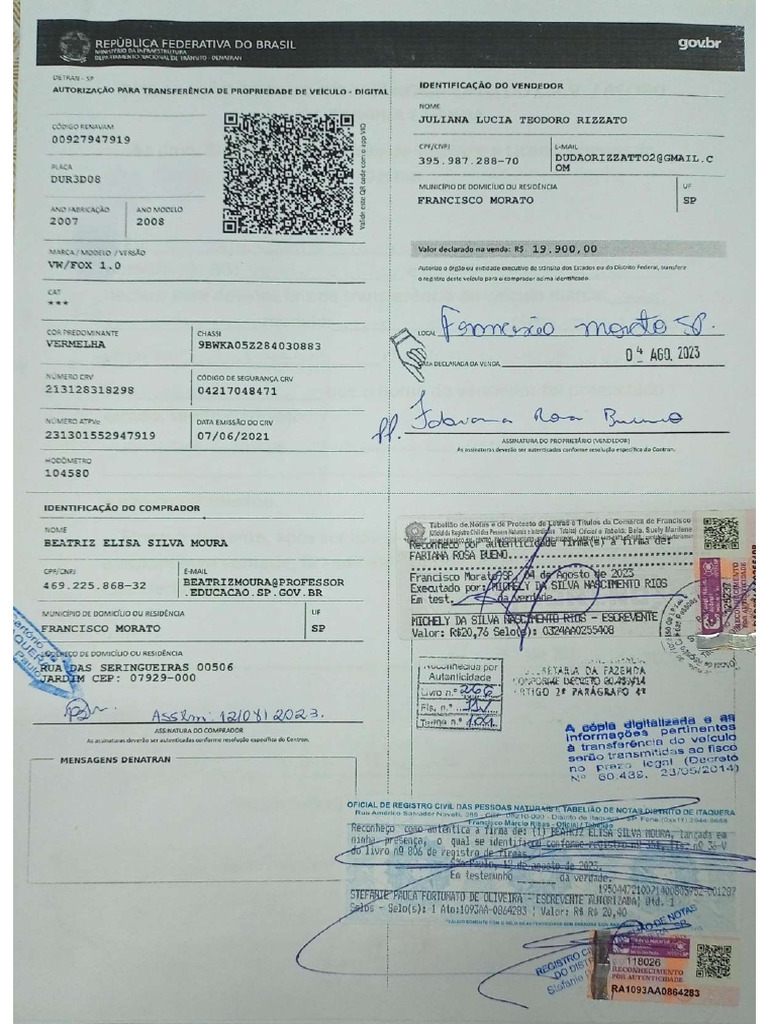 REPÚBLICA FEDERATIVA DO BRASIL
MINISTÉRIO DA INFRAESTRUTURA
DEPARTAMENTO NACIONAL DE TRÂNSITO - DENATRAN
gov.br
DETRAN - SP
AUTORIZAÇÃO PARA TRANSFERÊNCIA DE PROPRIEDADE DE VEÍCULO - DIGITAL
CÓDIGO RENAVAM
00927947919
PLACA
DUR3D08
ANO FABRICAÇÃO
2007
ANO MODELO
2008
Valide este QR code com o app VIO
MARCA / MODELO / VERSÃO
VW/FOX 1.0
CAT
***
COR PREDOMINANTE
VERMELHA
CHASSI
9BWKA05Z284030883
NÚMERO CRV
213128318298
CÓDIGO DE SEGURANÇA CRV
04217048471
NÚMERO ATPVe
231301552947919
DATA EMISSÃO DO CRV
07/06/2021
HODÔMETRO
104580
IDENTIFICAÇÃO DO VENDEDOR
NOME
JULIANA LUCIA TEODORO RIZZATO
CPF/CNPJ
395.987.288-70
E-MAIL
DUDAORIZZATTO2@GMAIL.C
OM
MUNICÍPIO DE DOMICÍLIO OU RESIDÊNCIA
FRANCISCO MORATO
UF
SP
Valor declarado na venda: R$ 19.900,00
Autorizo o órgão ou entidade executivo de trânsito dos Estados ou do Distrito Federal, transferir
o registro deste veículo para o comprador acima identificado.
LOCAL
Francisco Morato SP.
DATA DECLARADA DA VENDA
04 AGO. 2023
pp. Fabiana Rosa Bueno
ASSINATURA DO PROPRIETÁRIO (VENDEDOR)
As assinaturas deverão ser autenticadas conforme resolução específica do Contran.
IDENTIFICAÇÃO DO COMPRADOR
NOME
BEATRIZ ELISA SILVA MOURA
CPF/CNPJ
469.225.868-32
E-MAIL
BEATRIZMOURA@PROFESSOR
.EDUCACAO.SP.GOV.BR
MUNICÍPIO DE DOMICÍLIO OU RESIDÊNCIA
FRANCISCO MORATO
UF
SP
ENDEREÇO DE DOMICÍLIO OU RESIDÊNCIA
RUA DAS SERINGUEIRAS 00506
JARDIM CEP: 07929-000
12/08/2023.
ASSINATURA DO COMPRADOR
As assinaturas deverão ser autenticadas conforme resolução específica do Contran.
MENSAGENS DENATRAN
Tabelião de Notas e de Protesto de Letras e Títulos da Comarca de Francisco
Reconheço por autenticidade firma(s) a firma de:
FABIANA ROSA BUENO.
Francisco Morato/SP, 04 de Agosto de 2023
Executado por: MICHELY DA SILVA NASCIMENTO RIOS
Em test. da verdade.
MICHELY DA SILVA NASCIMENTO RIOS - ESCREVENTE
Valor: R$20,76 Selo(s): 0324AA0255408
RECONHECIMENTO
POR AUTENTICIDADE
Reconhecida por
Autenticidade
Livro n.º 266
Fls. n.º
Termo n.º 101
SECRETARIA DA FAZENDA
CONFORME DECRETO 60.489/14
ARTIGO 2º PARÁGRAFO 4º
A cópia digitalizada e as
informações pertinentes
à transferência do veículo
serão transmitidas ao fisco
no prazo legal (Decreto
Nº 60.489, 23/05/2014)
OFICIAL DE REGISTRO CIVIL DAS PESSOAS NATURAIS E TABELIÃO DE NOTAS DISTRITO DE ITAQUERA
Francisco Marcio Ribas - Oficial / Tabelião
Reconheço como autêntica a firma de: (1) BEATRIZ ELISA SILVA MOURA, lançada em
minha presença, o qual se identificou conforme registro nº
do livro nº 806 de registro de firmas.
São Paulo, 12 de agosto de 2023.
Em testemunho ______ da verdade.
STEFANIE PAULA FORTUNATO DE OLIVEIRA - ESCREVENTE AUTORIZADA| Qtd. 1
Selos - Selo(s): 1 Ato:1093AA-0864283 | Valor: R$ R$ 20,40
118026
RECONHECIMENTO
POR AUTENTICIDADE
RA1093AA0864283